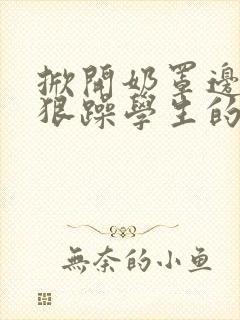 掀開奶罩邊
狠躁學生的
無奈的小鱼